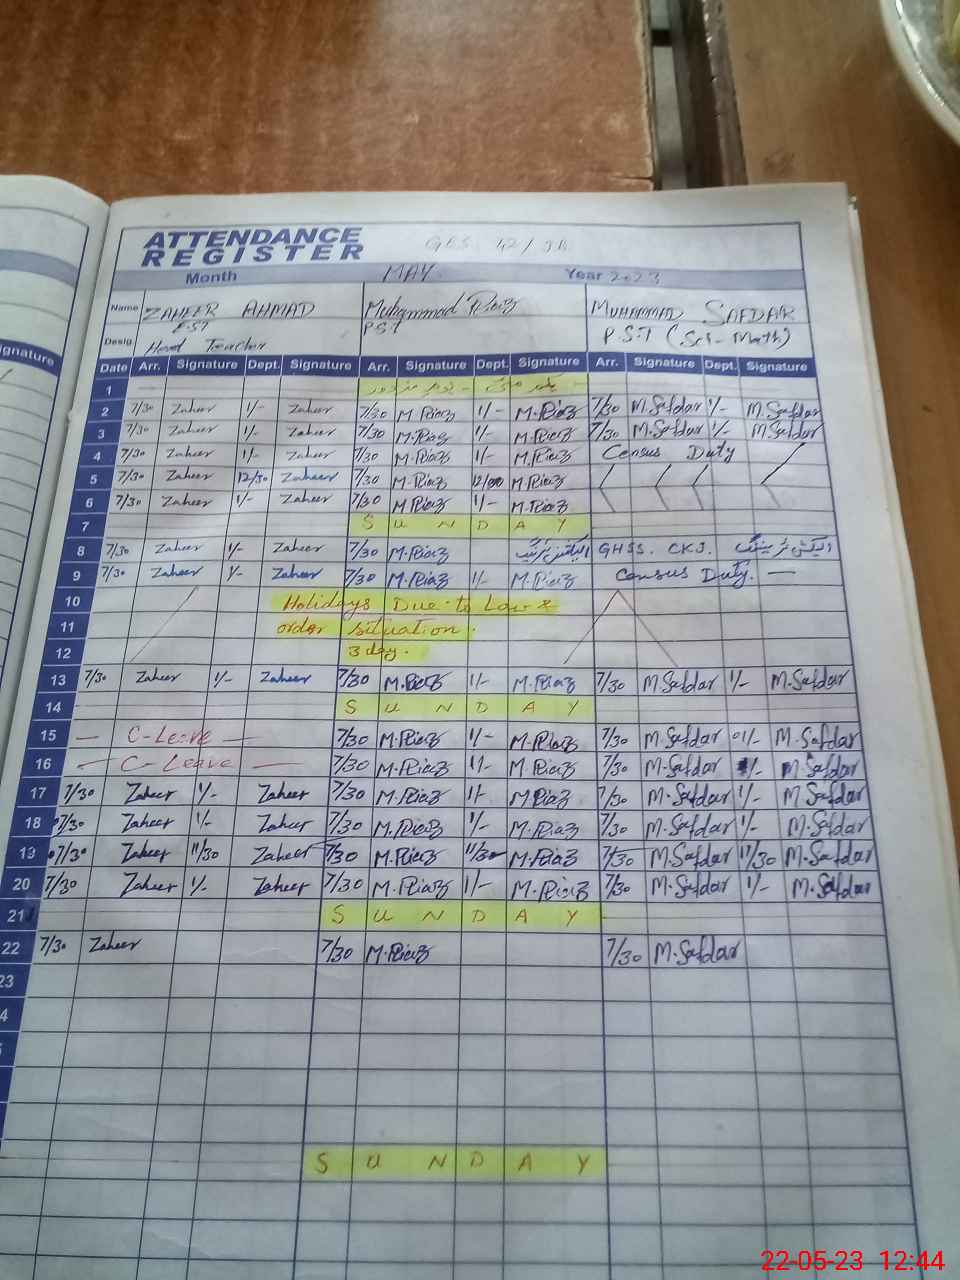 ATTENDANCE
REGISTER
Month MAY Year 2023
Name ZAHEER AHMAD Muhammad Riaz MUHAMMAD SAFDAR
EST P.S.T P.S.T (Sci-Math)
Desig. Head Teacher
ignature Date Arr. Signature Dept. Signature Arr. Signature Dept. Signature Arr. Signature Dept. Signature
1 یکم مئی - یوم مزدور
2 7/30 Zaheer 1/- Zaheer 7/30 M.Riaz 1/- M.Riaz 7/30 M.Safdar 1/- M.Safdar
3 7/30 Zaheer 1/- Zaheer 7/30 M.Riaz 1/- M.Riaz 7/30 M.Safdar 1/- M.Safdar
4 7/30 Zaheer 1/- Zaheer 7/30 M.Riaz 1/- M.Riaz Census Duty
5 7/30 Zaheer 12/30 Zaheer 7/30 M.Riaz M.Riaz
6 7/30 Zaheer 1/- Zaheer 7/30 M.Riaz 1/- M.Riaz
7 S U N D A Y
8 7/30 Zaheer 1/- Zaheer 7/30 M.Riaz الیکشن ٹریننگ GHSS. CKJ. الیکشن ٹریننگ
9 7/30 Zaheer 1/- Zaheer 7/30 M.Riaz 1/- M.Riaz Census Duty. —
10 Holidays Due to Law &
11 order situation.
12 3 day.
13 7/30 Zaheer 1/- Zaheer 7/30 M.Riaz 1/- M.Riaz 7/30 M.Safdar 1/- M.Safdar
14 S U N D A Y
15 — C-Leave — 7/30 M.Riaz 1/- M.Riaz 7/30 M.Safdar 01/- M.Safdar
16 — C-Leave — 7/30 M.Riaz 1/- M.Riaz 7/30 M.Safdar 1/- M.Safdar
17 7/30 Zaheer 1/- Zaheer 7/30 M.Riaz 1/- M.Riaz 7/30 M.Safdar 1/- M.Safdar
18 7/30 Zaheer 1/- Zaheer 7/30 M.Riaz 1/- M.Riaz 7/30 M.Safdar 1/- M.Safdar
19 7/30 Zaheer 11/30 Zaheer 7/30 M.Riaz 11/30 M.Riaz 7/30 M.Safdar 11/30 M.Safdar
20 7/30 Zaheer 1/- Zaheer 7/30 M.Riaz 1/- M.Riaz 7/30 M.Safdar 1/- M.Safdar
21 S U N D A Y
22 7/30 Zaheer 7/30 M.Riaz 7/30 M.Safdar
23
4
S U N D A Y
22-05-23 12:44